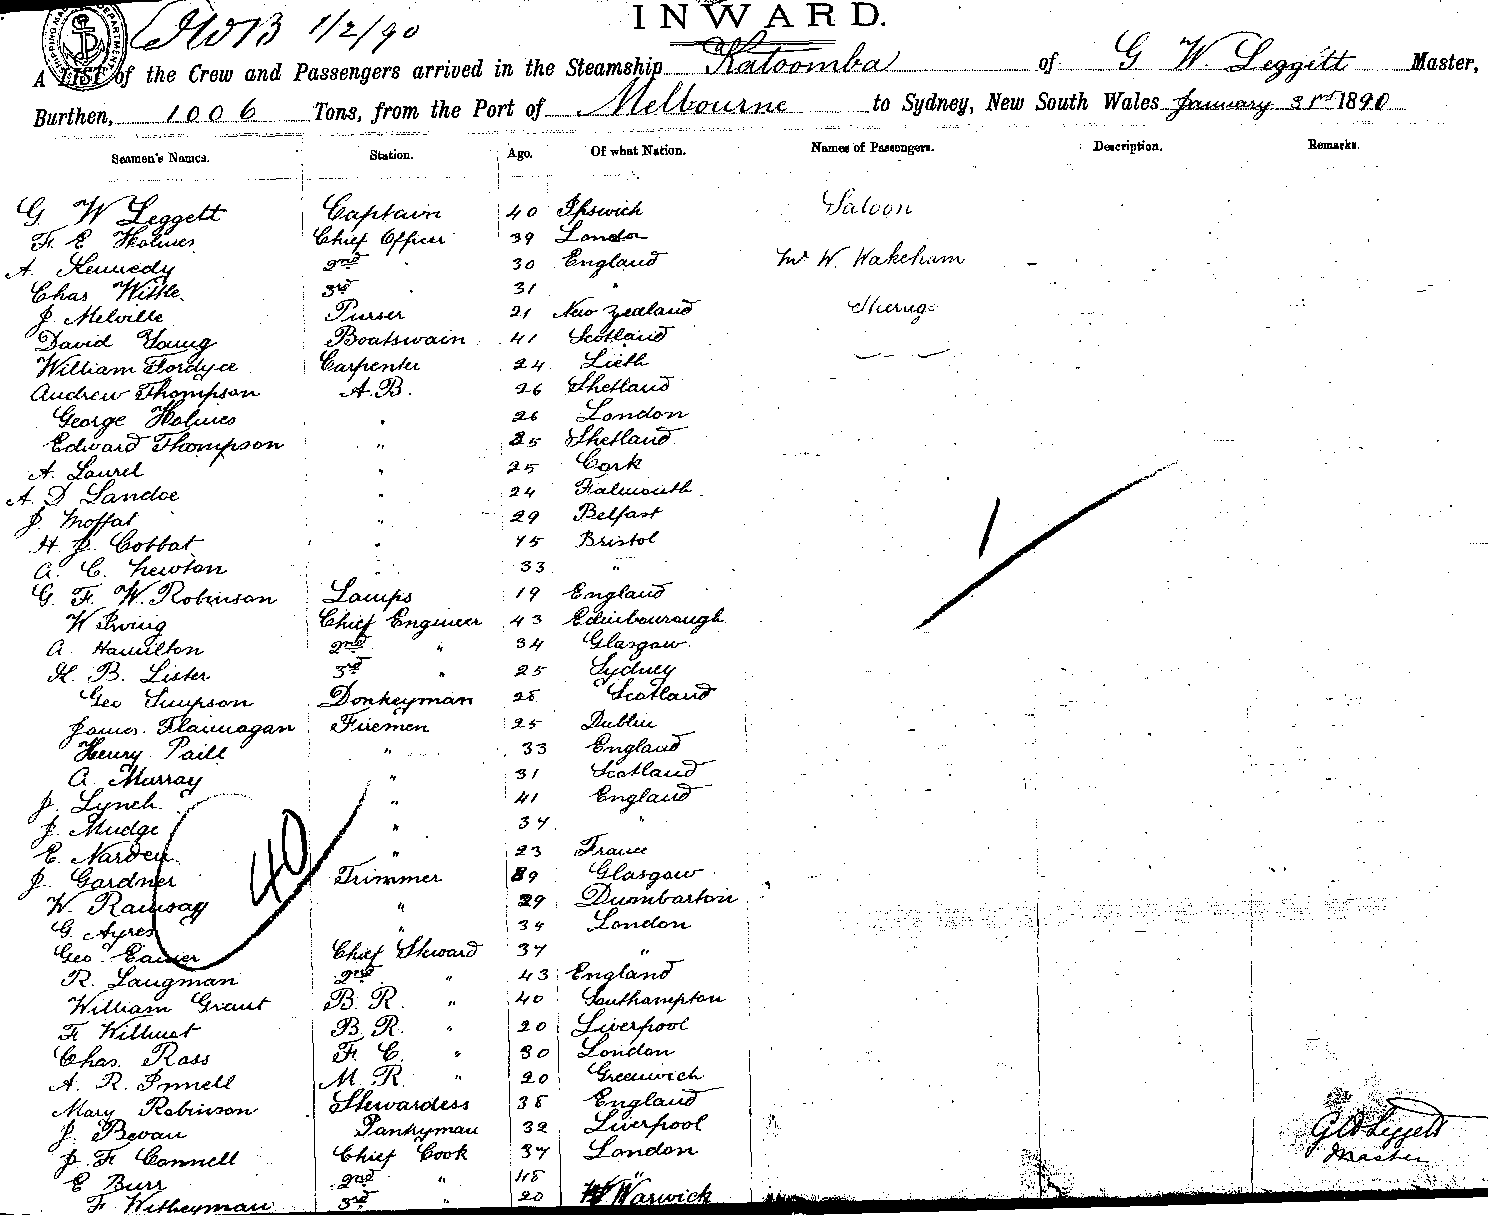 INWARD.
1/2/90
A LIST of the Crew and Passengers arrived in the Steamship Katoomba of G W Leggitt Master,
Burthen, 1006 Tons, from the Port of Melbourne to Sydney, New South Wales January 31st 1890
Seamen's Names. Station. Age. Of what Nation. Names of Passengers. Description. Remarks.
G W Leggett Captain 40 Ipswich Saloon
F. E Holmes Chief Officer 39 London
A. Kennedy 2nd " 30 England Mr W. Wakeham
Chas Wittle 3rd " 31 "
J. Melville Purser 21 New Zealand Sterag
David Young Boatswain 41 Scotland
William Fordyce Carpenter 24 Lieth
Andrew Thompson A.B. 26 Shetland
George Holmes " 26 London
Edward Thompson " 25 Shetland
A. Laurel " 25 Cork
A. D Landoe " 24 Falmouth
J. Moffat " 29 Belfast
H. J. Cottat " 45 Bristol
A. C. Newton " 33 "
G. F. W. Robinson Lamps 19 England
W Irving Chief Engineer 43 Edinbourough
A. Hamilton 2nd " 34 Glasgow
H. B. Lister 3rd " 25 Sydney
Geo Simpson Donkeyman 28 Scotland
James Flannagan Firemen 25 Dublin
Henry Paill " 33 England
A. Murray " 31 Scotland
J. Lynch " 41 England
J. Mudge " 34 "
E. Narden " 23 France
J. Gardner Trimmer 39 Glasgow
W. Ramsay " 29 Dumbarton
G. Ayres " 34 London
Geo. Chief Steward 37 "
R. Langman 2nd " 43 England
William Grant B. R. " 40 Southampton
F. Willmet B. R. " 20 Liverpool
Chas. Ross F. C. " 30 London
A. R. Innell M. R. " 20 Greenwich
Mary Robinson Stewardess 38 England
J. Bevan Pantryman 32 Liverpool
J. F. Connell Chief Cook 37 London
E Burr 2nd " 48 "
F Witheyman 3rd " 20 Warwick
40
1
G W Leggett
Master